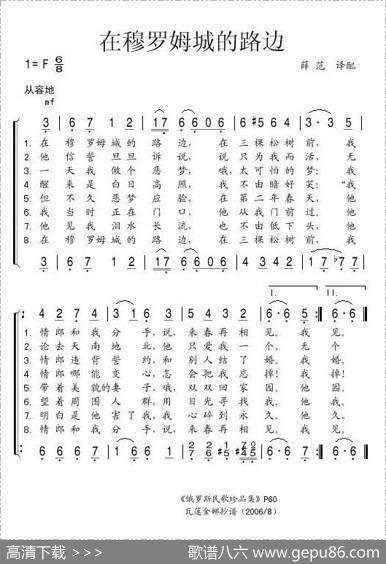 在穆罗姆城的路边
1=F 6/8
薛范 译配
从容地
mf
3 | 6 7 1 2 | 17 6 6 0 0 6 | 6 #5 #4 3 | 3 3 3 0 0 3
1. 在 穆 罗 姆 城 的 路 边, 在 三 棵 松 树 前, 我
2. 他 信 誓 旦 旦 诉 说, 说 只 为 我 而 活, 无
3. 一 天 我 做 个 恶 梦, 哦, 太 可 怕 的 梦: 我
4. 醒 来 是 白 日 高 照, 我 不 由 暗 好 笑: “我
5. 但 不 久 恶 梦 应 验, 在 第 二 年 春 天, 他
6. 我 当 时 正 在 门 口, 他 从 我 门 前 过, 他
7. 他 见 我 泪 水 长 流, 也 不 由 低 下 头, 他
8. 在 穆 罗 姆 城 的 路 边, 在 三 棵 松 树 前, 我
I. II.
4 2 7 4 | 3 1 6 0 0 6
1. 情 郎 和 我 分 手, 说, 来 春 再 相 见。 我 见。
2. 论 去 天 南 地 北, 他 只 爱 我 一 个。 无 个
3. 情 郎 违 背 誓 约, 和 别 人 结 了 婚。 我 婚。
4. 情 郎 哪 能 变 心, 怎 会 把 我 忘 掉! 我 掉!
5. 带 着 美 貌 的 妻 子, 哦, 双 双 回 家 园。 他 园。
6. 望 着 周 围 人 群, 用 目 光 寻 找 我。 他 我。
7. 明 白 是 他 害 了 我, 我 心 碎 到 永 久。 他 久。
8. 情 郎 和 我 分 手, 说, 来 春 再 相 见。 我 见。
《俄罗斯民歌珍品集》P60
瓦莲金娜抄谱（2006/8）
高清下载 >>>
歌谱八六 www.gepu86.com